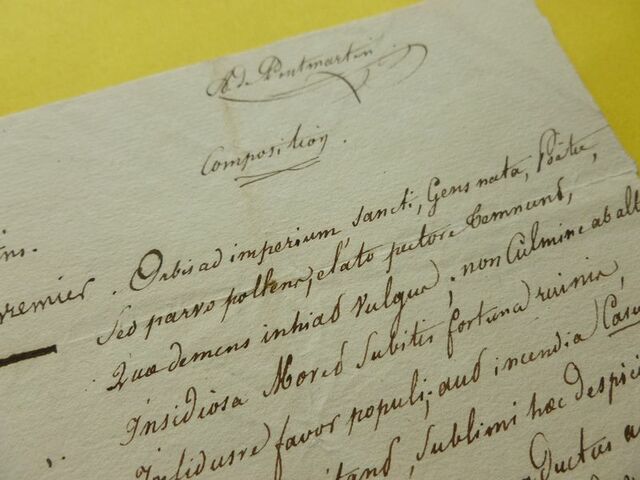 A de Pontmartin
Composition.
Premier. Orbis ad imperium, sancti, Gens nata, Poëtæ,
Sed parvo pollens, elato pectore temnunt,
Quæ demens inhiat vulgus; non Culmine ab alto
Insidiosa Movet Subitis fortuna ruinis,
favor populi; aut incendia
sublimi hæc despic
Ductus a